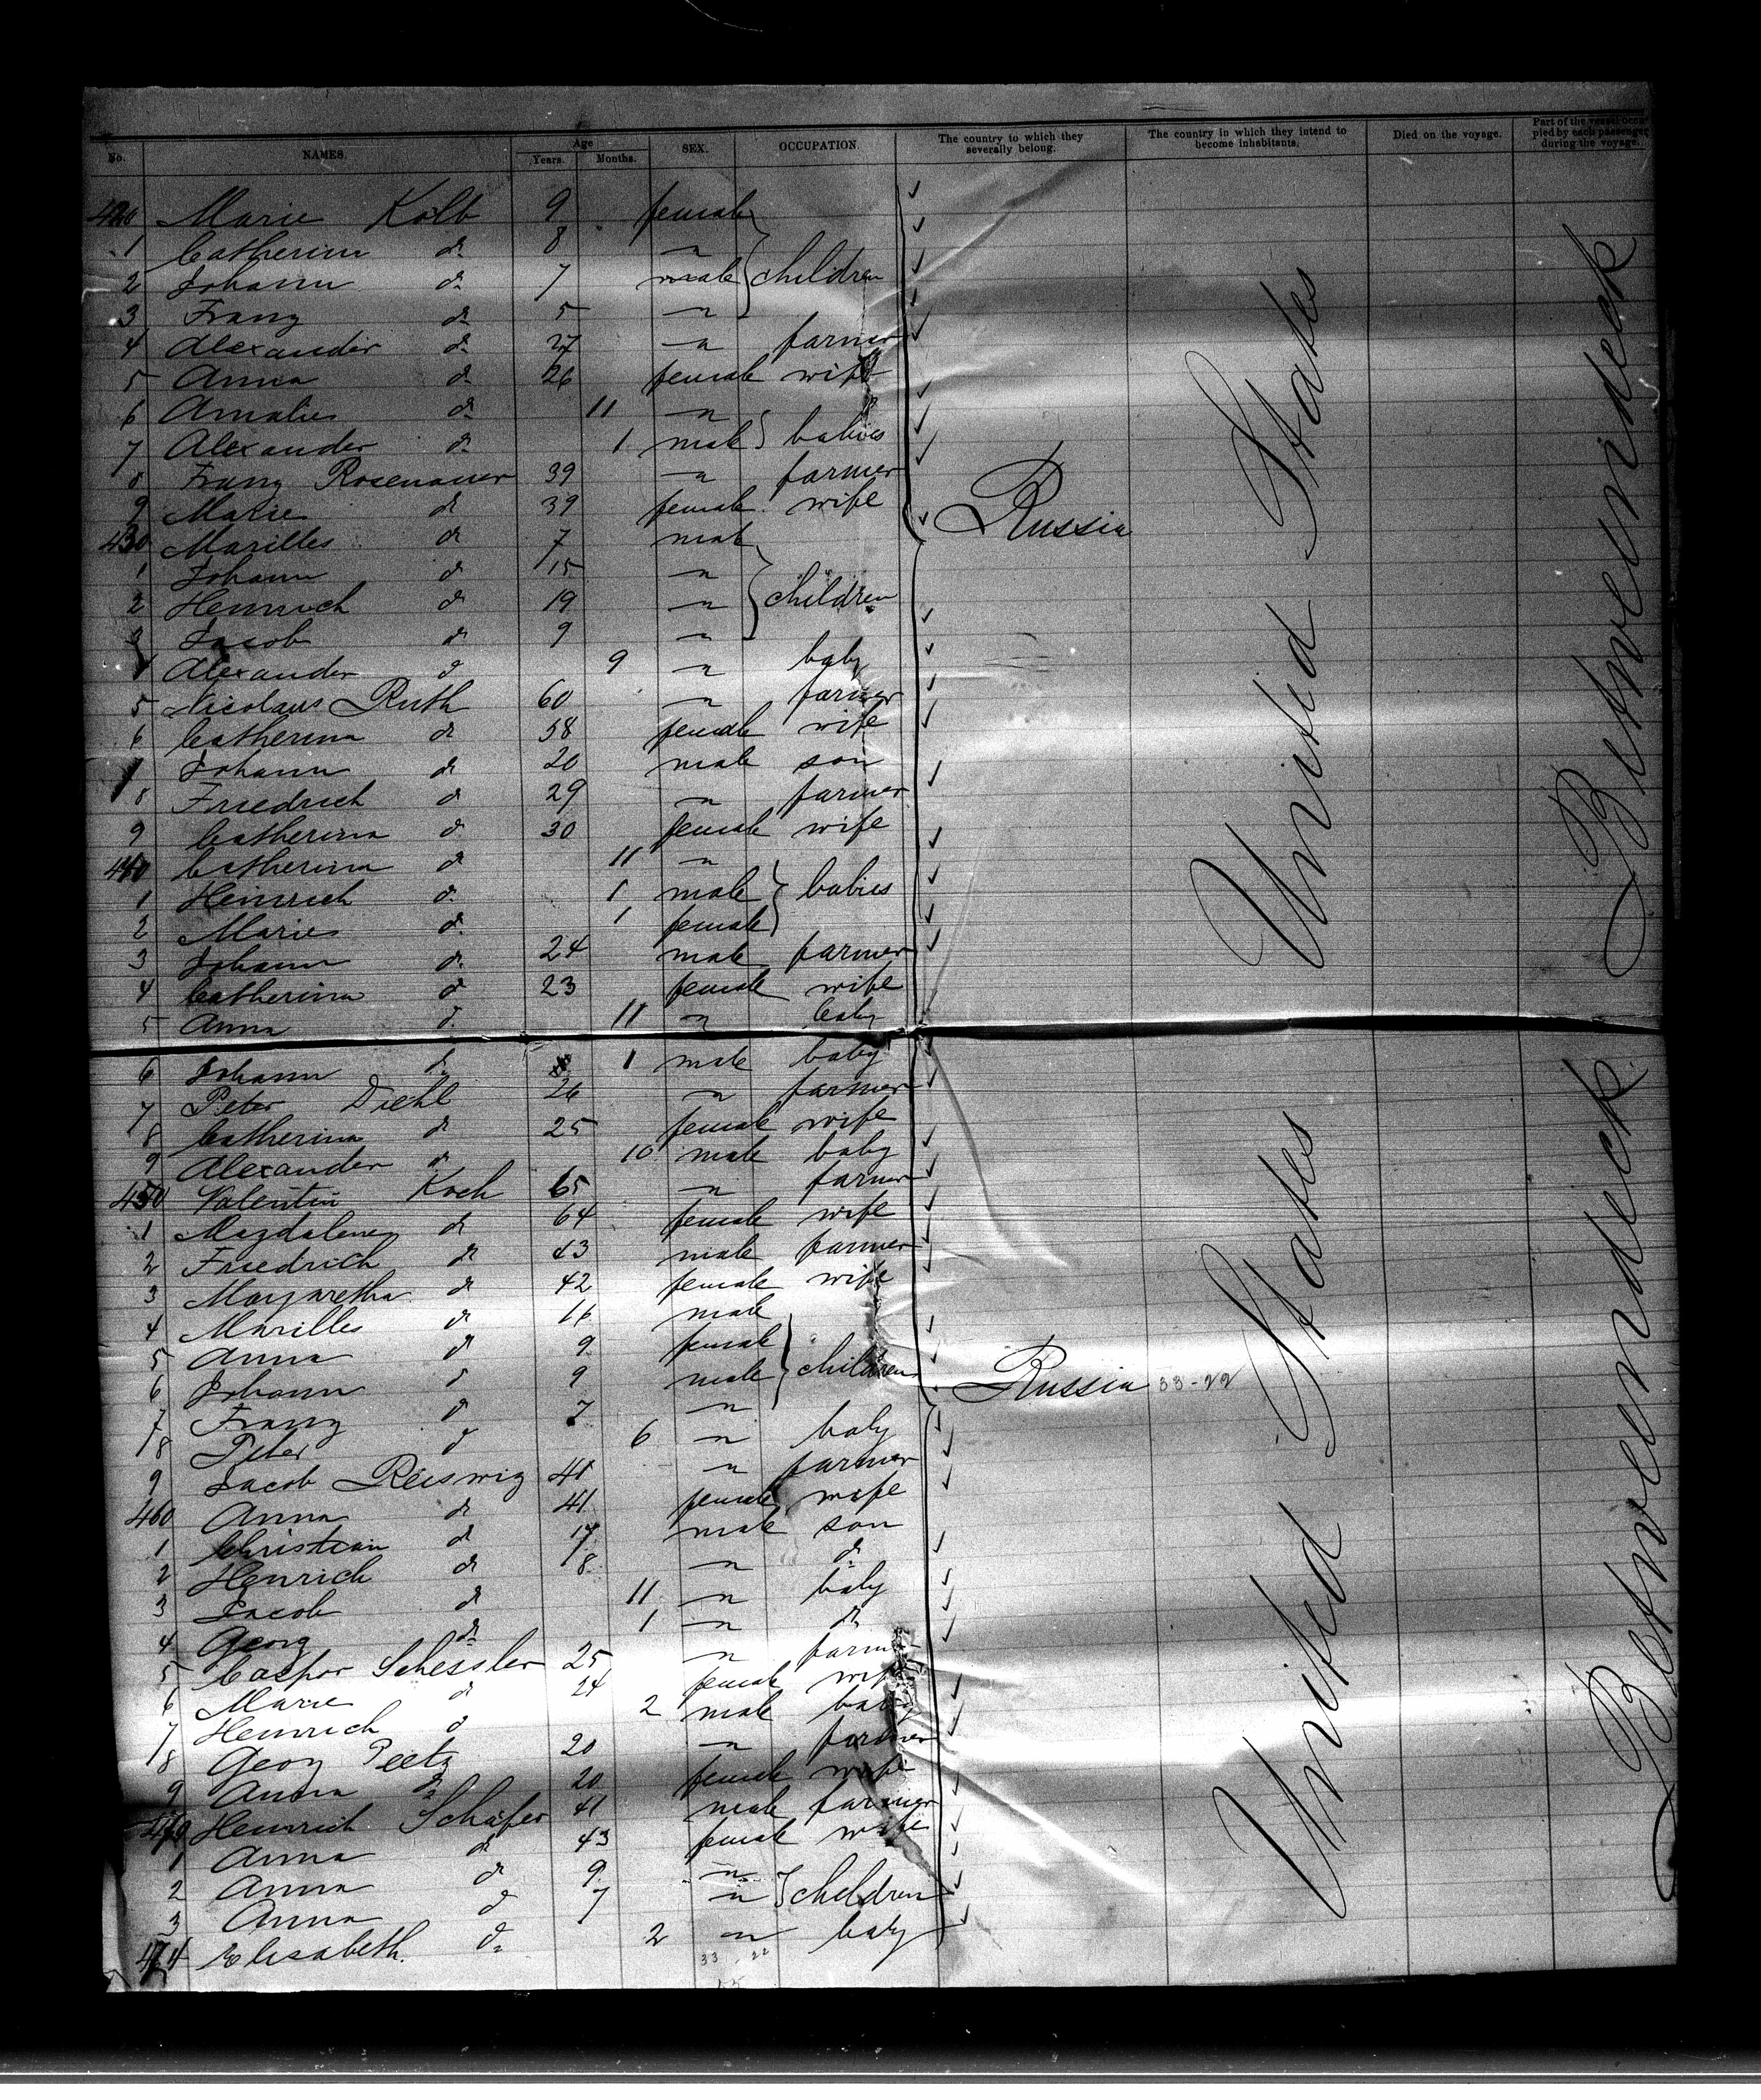 No. NAMES. Age Years. Months. SEX. OCCUPATION. The country to which they severally belong. The country in which they intend to become inhabitants. Died on the voyage. Part of the vessel occupied by each passenger during the voyage.
420 Marie Kolb 9 female
1 Catherina do 8 "
2 Johann do 7 male children
3 Franz do 5 "
4 Alexander do 27 " farmer
5 Anna do 26 female wife
6 Amalie do 11 "
7 Alexander do 1 male babies
8 Franz Rosenauer 39 " farmer
9 Marie do 39 female wife
430 Marilles do 7 male
Russia
1 Johann do 15 "
2 Heinrich do 19 " children
3 Jacob do 9 "
4 Alexander do 9 " baby
5 Nicolaus Ruth 60 " farmer
6 Catherina do 58 female wife
7 Johann do 20 male son
8 Friedrich do 29 " farmer
9 Catherina do 30 female wife
440 Catherina do 11 "
1 Heinrich do 1 male babies
2 Marie do 1 female
3 Johann do 24 male farmer
4 Catherina do 23 female wife
5 Anna do 11 " baby
United States
Betweendeck
6 Johann do 1 male baby
7 Peter Diehl 26 " farmer
8 Catherina do 25 female wife
9 Alexander do 10 male baby
450 Valentin Koch 65 " farmer
1 Magdalena do 64 female wife
2 Friedrich do 43 male farmer
3 Margaretha do 42 female wife
4 Marilles do 16 male
5 Anna do 9 female
6 Johann do 9 male children
Russia 33-22
7 Franz do 7 "
8 Peter do 6 " baby
9 Jacob Reiswig 41 " farmer
460 Anna do 41 female wife
1 Christian do 17 male son
2 Henrich do 8 " do
3 Jacob do 11 " baby
4 Georg do 1 " do
5 Caspar Schessler 25 " farmer
6 Marie do 24 female wife
7 Heinrich do 2 male baby
8 Georg Peetz 20 " farmer
9 Anna do 20 female wife
470 Heinrich Schäfer 41 male farmer
1 Anna do 43 female wife
2 Anna do 9 "
3 Anna do 7 " children
474 Elisabeth do 2 " baby
United States
Betweendeck
33-22